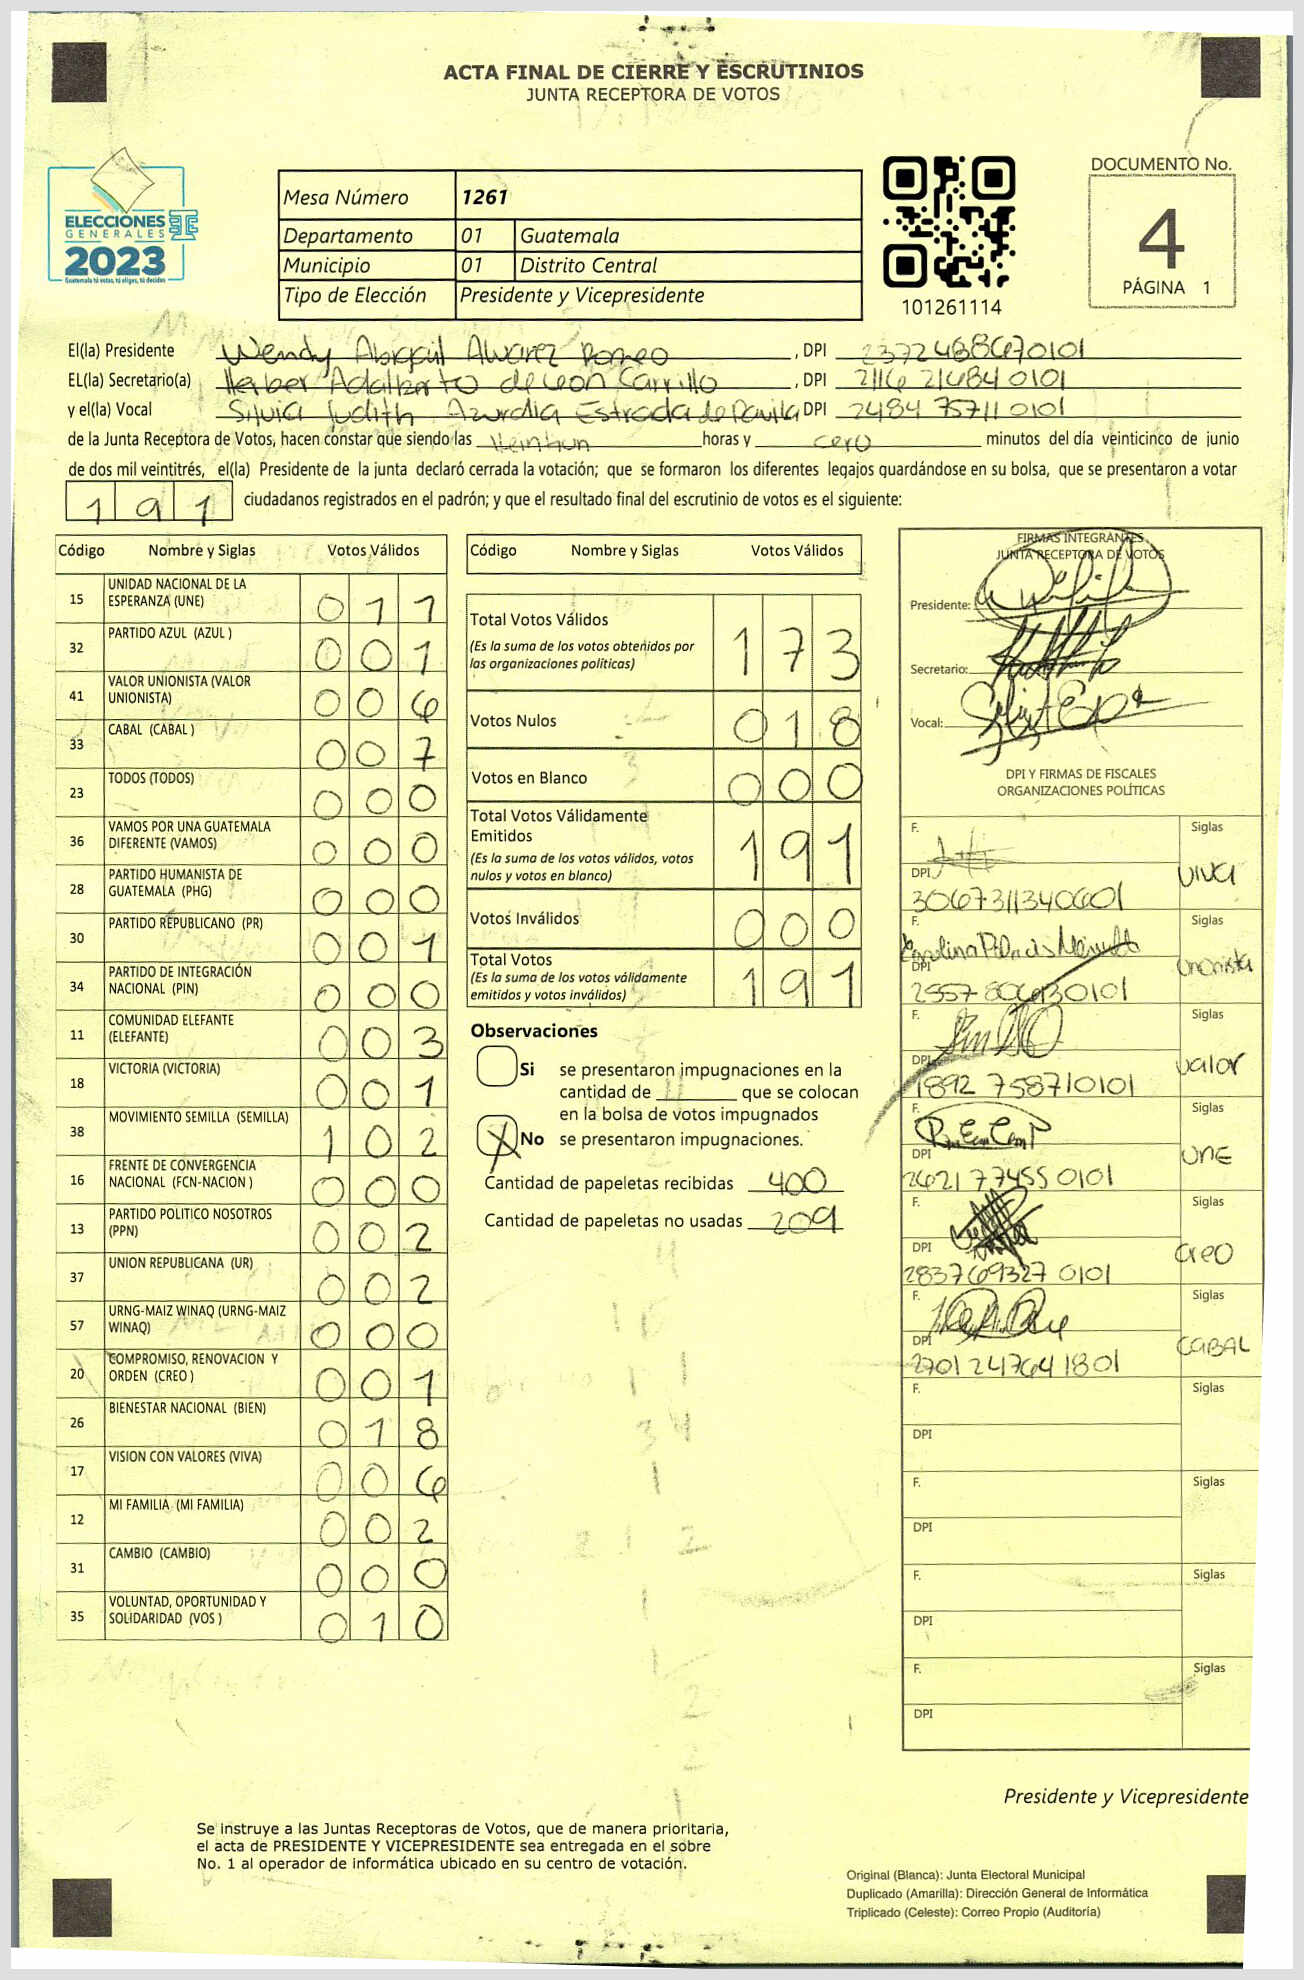 ACTA FINAL DE CIERRE Y ESCRUTINIOS
JUNTA RECEPTORA DE VOTOS
ELECCIONES
GENERALES
2023
Guatemala tú votas, tú eliges, tú decides
Mesa Número 1261
Departamento 01 Guatemala
Municipio 01 Distrito Central
Tipo de Elección Presidente y Vicepresidente
101261114
DOCUMENTO No.
4
PÁGINA 1
El(la) Presidente Wendy Abigail Alvarez Romeo, DPI 2372468670101
EL(la) Secretario(a) Heiber Adalberto de Leon Carrillo, DPI 2116 21684 0101
y el(la) Vocal Silvia Judith Azurdia Estrada de Davila DPI 2484 75711 0101
de la Junta Receptora de Votos, hacen constar que siendo las Veintiun horas y cero minutos del día veinticinco de junio
de dos mil veintitrés, el(la) Presidente de la junta declaró cerrada la votación; que se formaron los diferentes legajos guardándose en su bolsa, que se presentaron a votar
191 ciudadanos registrados en el padrón; y que el resultado final del escrutinio de votos es el siguiente:
Código Nombre y Siglas Votos Válidos
15 UNIDAD NACIONAL DE LA ESPERANZA (UNE) 011
32 PARTIDO AZUL (AZUL ) 001
41 VALOR UNIONISTA (VALOR UNIONISTA) 006
33 CABAL (CABAL ) 007
23 TODOS (TODOS) 000
36 VAMOS POR UNA GUATEMALA DIFERENTE (VAMOS) 000
28 PARTIDO HUMANISTA DE GUATEMALA (PHG) 000
30 PARTIDO REPUBLICANO (PR) 001
34 PARTIDO DE INTEGRACIÓN NACIONAL (PIN) 000
11 COMUNIDAD ELEFANTE (ELEFANTE) 003
18 VICTORIA (VICTORIA) 001
38 MOVIMIENTO SEMILLA (SEMILLA) 102
16 FRENTE DE CONVERGENCIA NACIONAL (FCN-NACION ) 000
13 PARTIDO POLITICO NOSOTROS (PPN) 002
37 UNION REPUBLICANA (UR) 002
57 URNG-MAIZ WINAQ (URNG-MAIZ WINAQ) 000
20 COMPROMISO, RENOVACION Y ORDEN (CREO ) 001
26 BIENESTAR NACIONAL (BIEN) 018
17 VISION CON VALORES (VIVA) 006
12 MI FAMILIA (MI FAMILIA) 002
31 CAMBIO (CAMBIO) 000
35 VOLUNTAD, OPORTUNIDAD Y SOLIDARIDAD (VOS ) 010
Código Nombre y Siglas Votos Válidos
Total Votos Válidos 173
(Es la suma de los votos obtenidos por
las organizaciones políticas)
Votos Nulos 018
Votos en Blanco 000
Total Votos Válidamente
Emitidos 191
(Es la suma de los votos válidos, votos
nulos y votos en blanco)
Votos Inválidos 000
Total Votos 191
(Es la suma de los votos válidamente
emitidos y votos inválidos)
Observaciones
Si se presentaron impugnaciones en la
cantidad de que se colocan
en la bolsa de votos impugnados
X No se presentaron impugnaciones.
Cantidad de papeletas recibidas 400
Cantidad de papeletas no usadas 209
FIRMAS INTEGRANTES
JUNTA RECEPTORA DE VOTOS
Presidente:
Secretario:
Vocal:
DPI Y FIRMAS DE FISCALES
ORGANIZACIONES POLÍTICAS
F. Siglas
DPI 3067311340601 VIVA
F. Siglas
DPI 2557 806930101 Unionista
F. Siglas
DPI 1892 758710101 Valor
F. Siglas
DPI 2621 77455 0101 UNE
F. Siglas
DPI 283769327 0101 Creo
F. Siglas
DPI 2701 24764 1801 CABAL
F. Siglas
DPI
F. Siglas
DPI
F. Siglas
DPI
F. Siglas
DPI
Presidente y Vicepresidente
Se instruye a las Juntas Receptoras de Votos, que de manera prioritaria,
el acta de PRESIDENTE Y VICEPRESIDENTE sea entregada en el sobre
No. 1 al operador de informática ubicado en su centro de votación.
Original (Blanca): Junta Electoral Municipal
Duplicado (Amarilla): Dirección General de Informática
Triplicado (Celeste): Correo Propio (Auditoría)